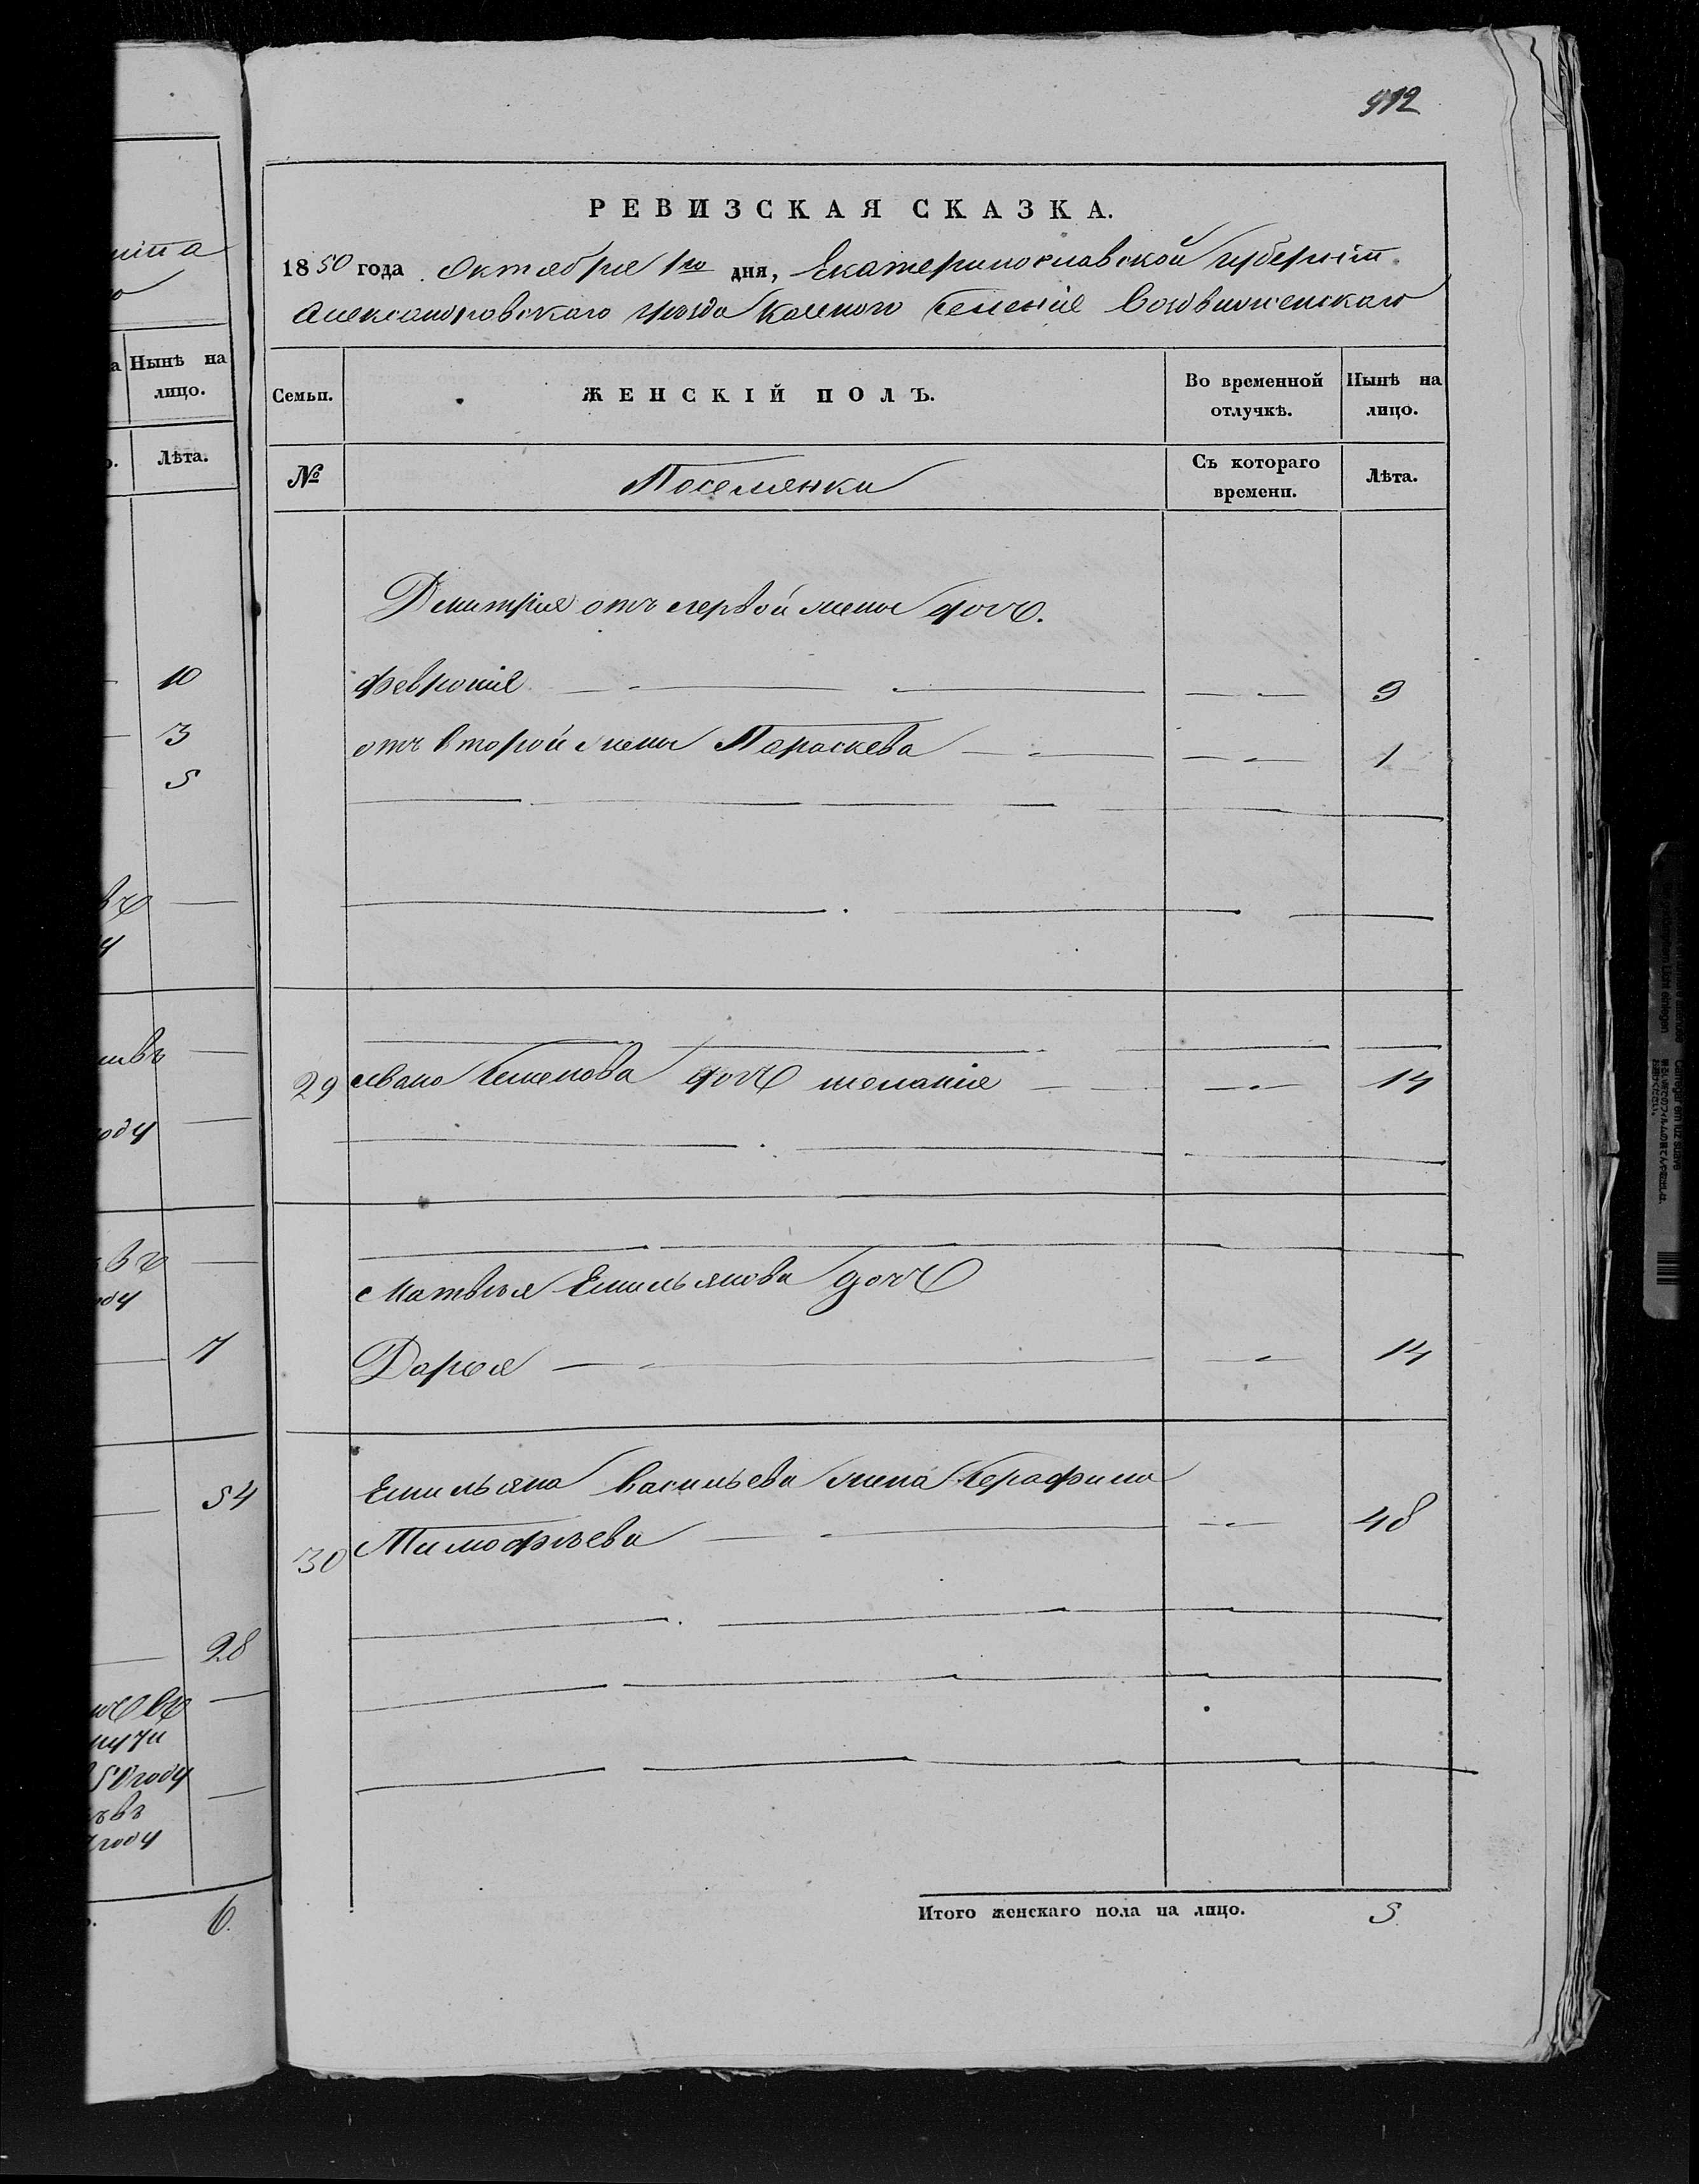 912
РЕВИЗСКАЯ СКАЗКА.
1850 года Октября 1го дня, Екатеринославской губерніи
Александровскаго уезда Казеного Селенія Воздвиженскаго
Семьи.
ЖЕНСКІЙ ПОЛЪ.
Во временной отлучкѣ.
Нынѣ на лицо.
№
Поселянки
Съ котораго времени.
Лѣта.
Дмитрия отъ первой жены дочь.
Феврония 9
отъ второй жены Параскева 1
29 Ивана Семенова дочь Меланія 14
Матвѣя Емильянова дочь
Дарья 14
Емильяна Васильева жена Серафима
30 Тимофѣева 48
Итого женскаго пола на лицо. 5
Нынѣ на
лицо.
Лѣта.
10
3
5
оду
7
54
28
году
году
6.